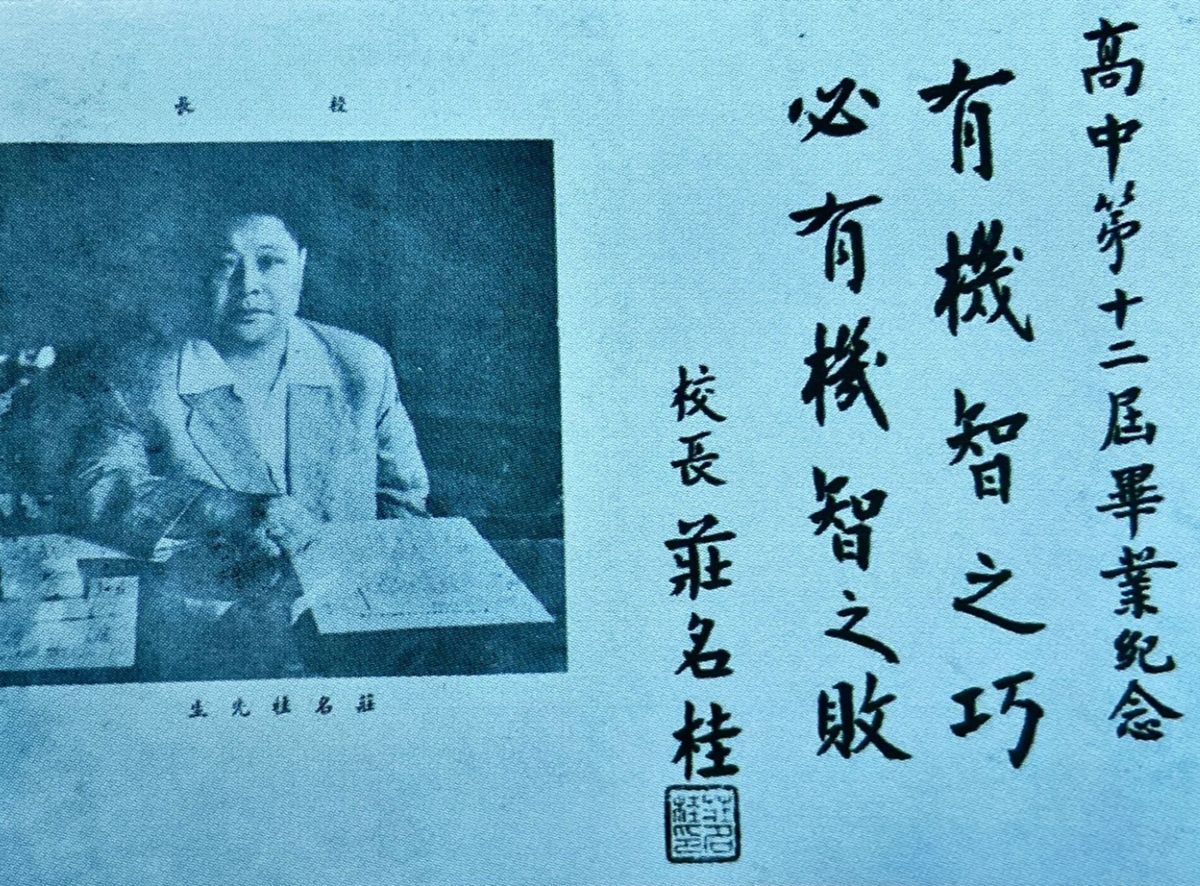 高中第十二屆畢業紀念
有機智之巧
必有機智之敗
校長 莊名桂
莊名桂印
校長
莊名桂先生